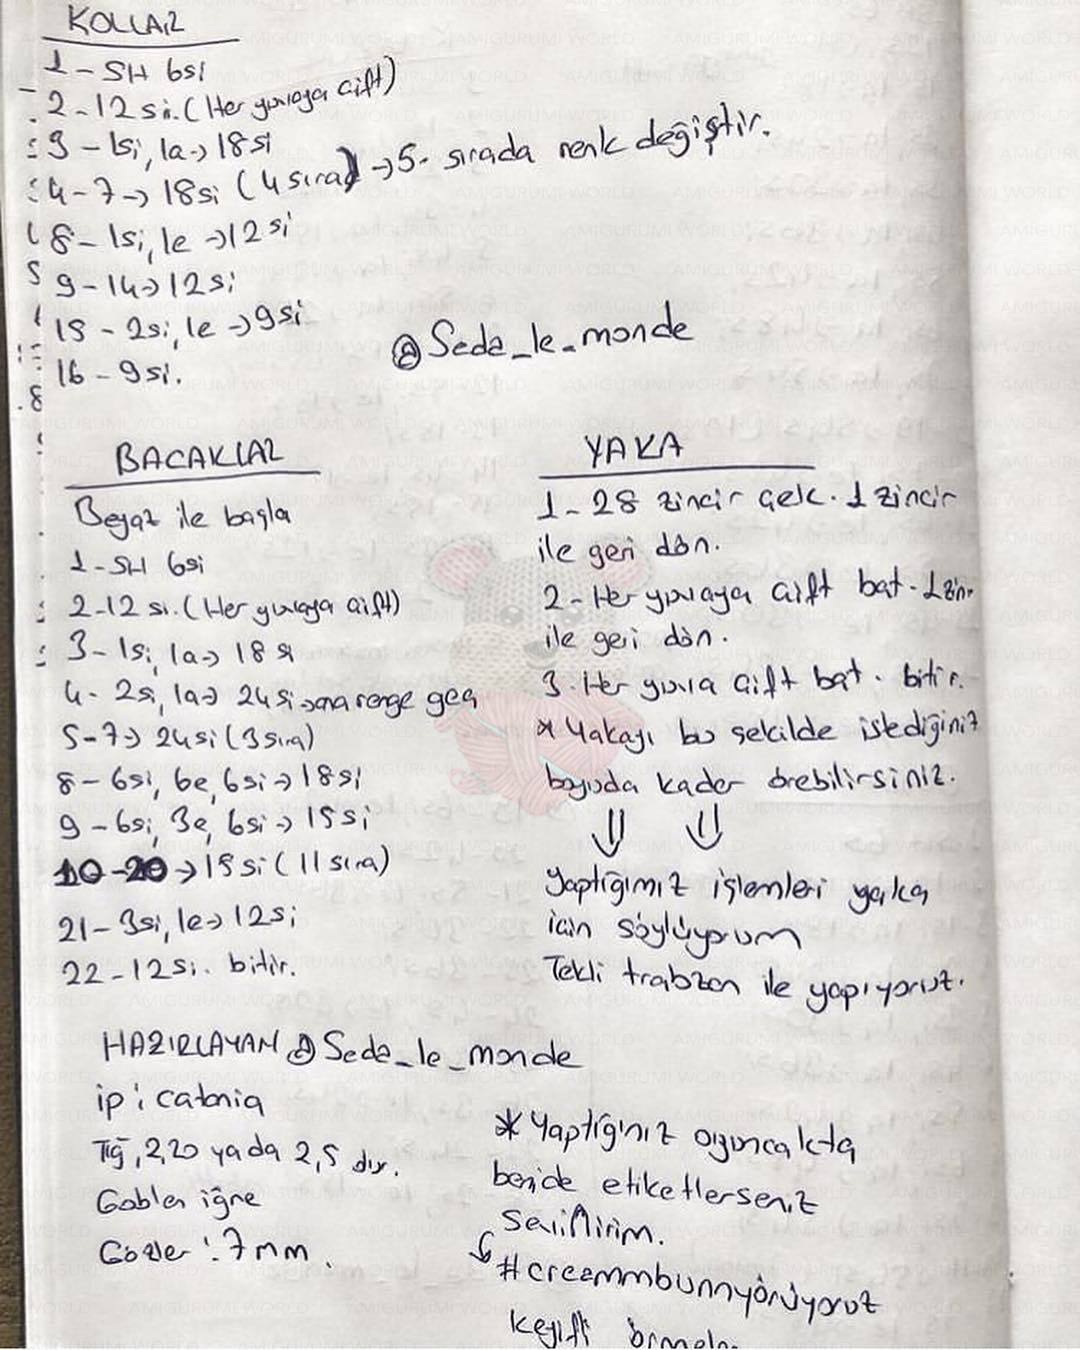 KOLLAR
1 - SH 6si
2 - 12 si. (Her yuvaya çift)
3 - 1si, 1a -> 18 si
4 - 7 -> 18si (4 sıra) -> 5. sırada renk değiştir.
8 - 1si, 1e -> 12 si
9 - 14 -> 12si
15 - 2si, 1e -> 9si
16 - 9si.
@Seda_le_monde
BACAKLAR
Beyaz ile başla
1 - SH 6si
2-12 si. (Her yuvaya çift)
3 - 1si, 1a -> 18 si
4 - 2si, 1a -> 24 si -> ana renge geç
5-7 -> 24si (3 sıra)
8 - 6si, 6e, 6si -> 18si
9 - 6si, 3e, 6si -> 15si
10-20 -> 15si (11 sıra)
21 - 3si, 1e -> 12si
22 - 12si. bitir.
YAKA
1 - 28 zincir çek. 1 zincir
ile geri dön.
2 - Her yuvaya çift bat. 1 zin.
ile geri dön.
3. Her yuva çift bat. bitir.
* Yakayı bu şekilde istediğiniz
boyuda kadar örebilirsiniz.
⇓ ⇓
Yaptığımız işlemleri yaka
için söylüyorum
Tekli trabzan ile yapıyoruz.
HAZIRLAYAN @Seda_le_monde
ip : catonia
Tığ, 2,20 ya da 2,5 dır.
Goblen iğne
Gözler : 7mm.
* Yaptığınız oyuncakta
benide etiketlerseniz
sevinirim.
#creammbunnyörüyoruz
keyifli
AMIGURUMI WORLD